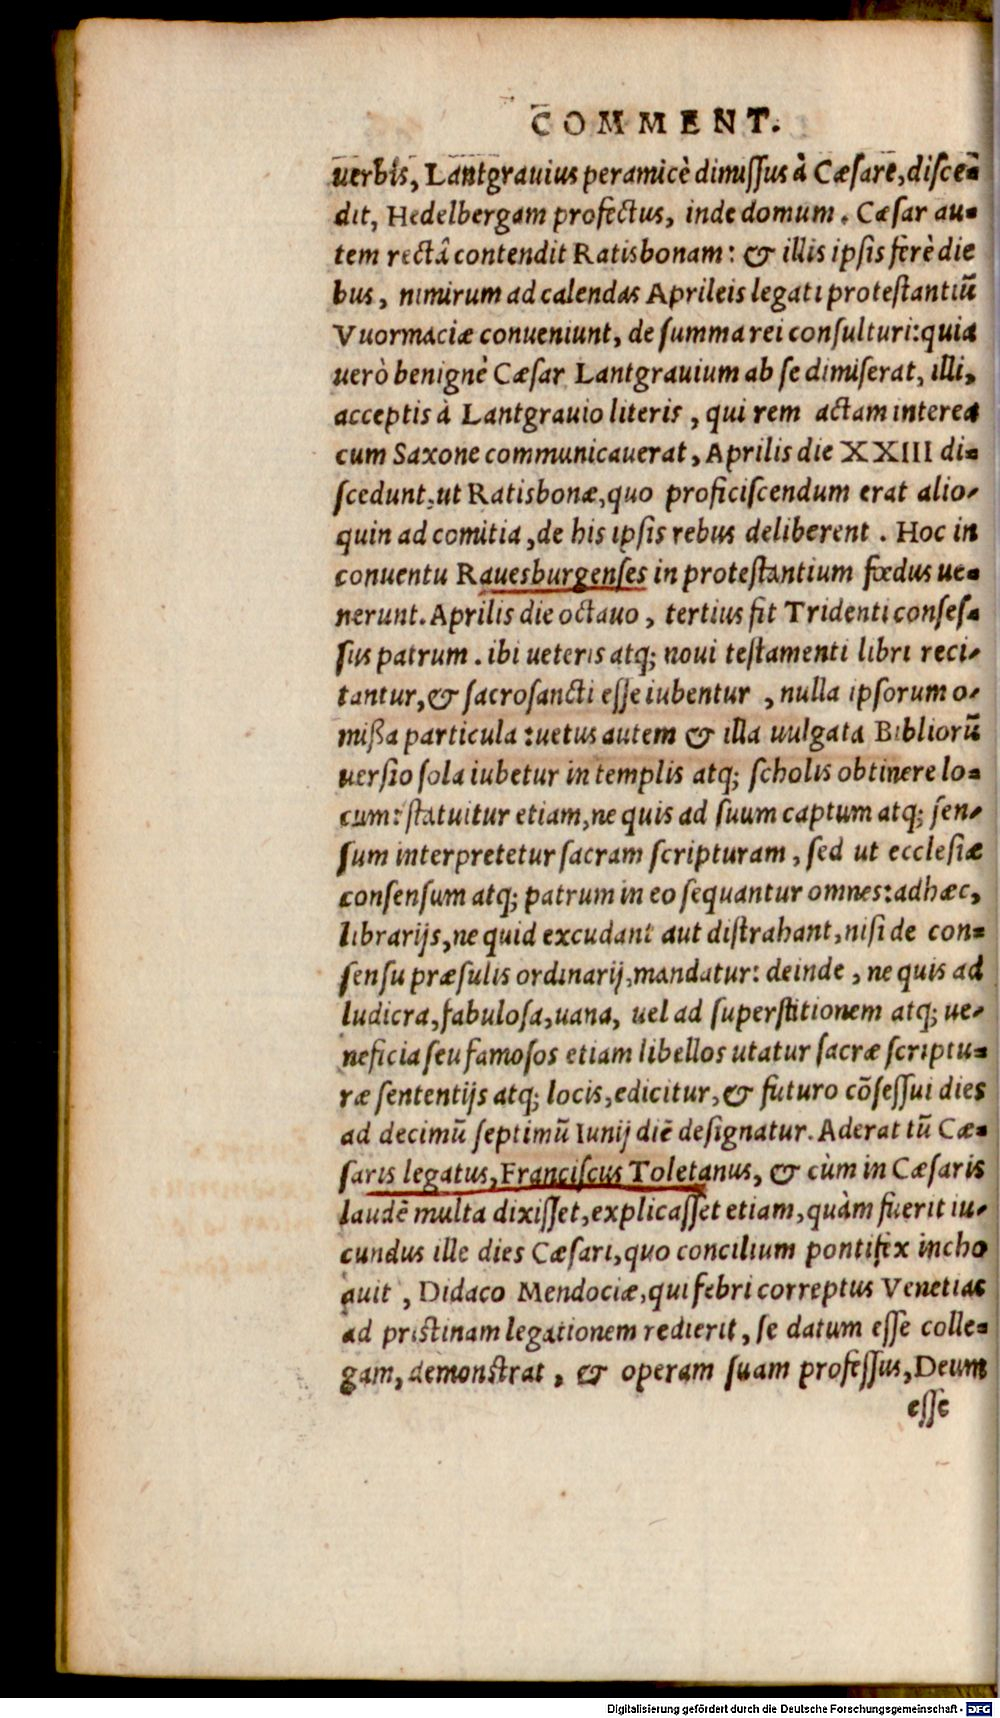 COMMENT.
uerbis, Lantgrauius peramicè dimissus à Cæsare, discē=
dit, Hedelbergam profectus, inde domum. Cæsar au=
tem rectâ contendit Ratisbonam: & illis ipsis ferè die
bus, nimirum ad calendas Aprileis legati protestantiū
Vuormaciæ conueniunt, de summa rei consulturi: quia
uerò benignè Cæsar Lantgrauium ab se dimiserat, illi,
acceptis à Lantgrauio literis, qui rem actam interea
cum Saxone communicauerat, Aprilis die XXIII di=
scedunt, ut Ratisbonæ, quo proficiscendum erat alio-
quin ad comitia, de his ipsis rebus deliberent. Hoc in
conuentu Rauesburgenses in protestantium fœdus ue=
nerunt. Aprilis die octauo, tertius fit Tridenti conses=
sus patrum. ibi ueteris atq; noui testamenti libri reci-
tantur, & sacrosancti esse iubentur, nulla ipsorum o-
mißa particula: uetus autem & illa uulgata Bibliorū
uersio sola iubetur in templis atq; scholis obtinere lo=
cum: statuitur etiam, ne quis ad suum captum atq; sen-
sum interpretetur sacram scripturam, sed ut ecclesiæ
consensum atq; patrum in eo sequantur omnes: adhæc,
librarijs, ne quid excudant aut distrahant, nisi de con=
sensu præsulis ordinarij, mandatur: deinde, ne quis ad
ludicra, fabulosa, uana, uel ad superstitionem atq; ue-
neficia seu famosos etiam libellos utatur sacræ scriptu=
ræ sententijs atq; locis, edicitur, & futuro cōsessui dies
ad decimū septimū Iunij diē designatur. Aderat tū Cæ=
saris legatus, Franciscus Toletanus, & cùm in Cæsaris
laudē multa dixisset, explicasset etiam, quàm fuerit iu-
cundus ille dies Cæsari, quo concilium pontifex incho
auit, Didaco Mendociæ, qui febri correptus Venetias
ad pristinam legationem redierit, se datum esse colle=
gam, demonstrat, & operam suam professus, Deum
esse
Digitalisierung gefördert durch die Deutsche Forschungsgemeinschaft - DFG